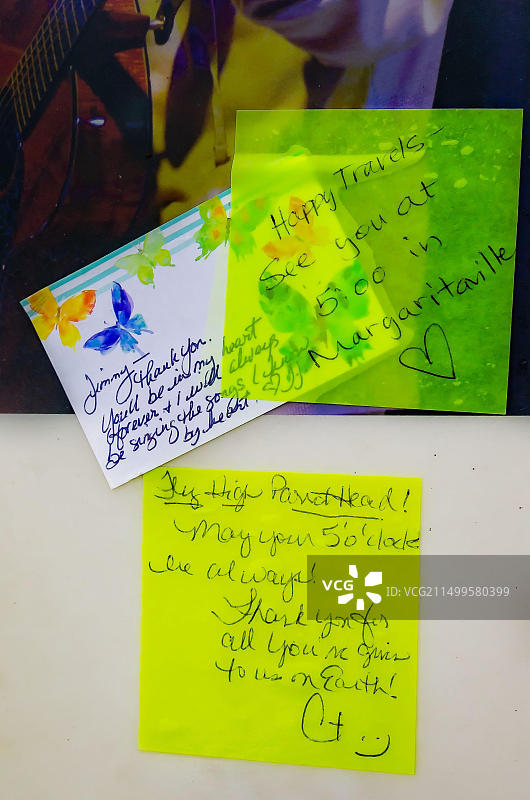 Happy Travels -
See you at
5:00 in
Margaritaville
Jimmy -
Thank you.
You'll be in my heart
forever + I will always
be singing the songs I
by heart!
Fly High Parrot Head!
May your 5 o'clock
be always!
Thank you for
all you've given
to us on Earth!
VCG
ID: VCG211499580399